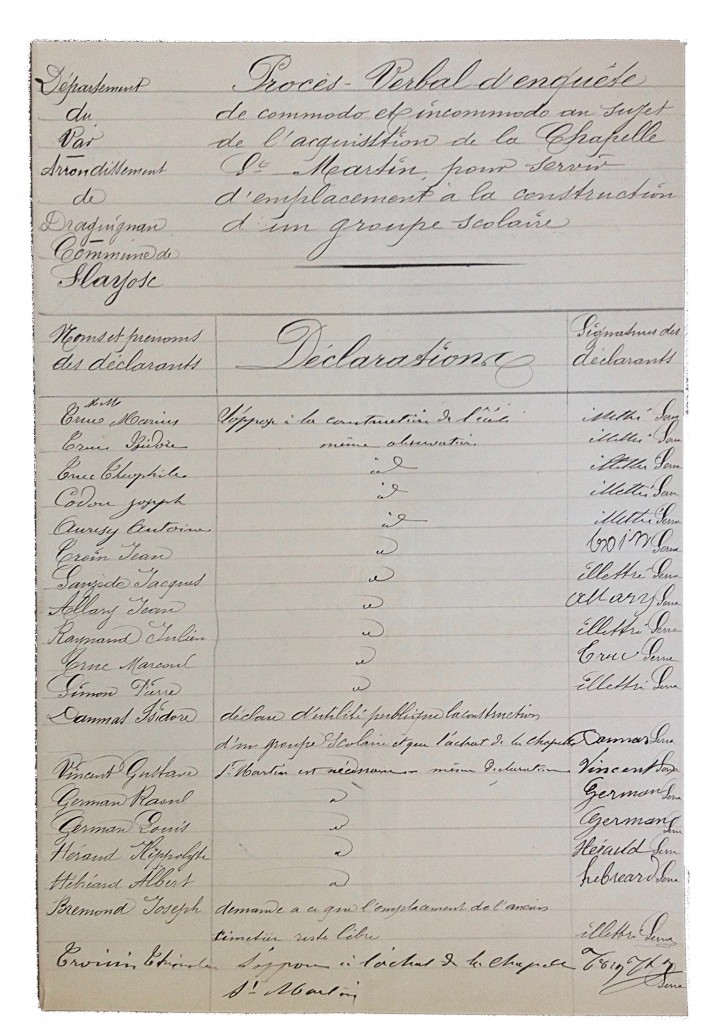 Département
du
Var
Arrondissement
de
Draguignan
Commune de
Flayosc
Procès-Verbal d'enquête
de commodo et incommodo au sujet
de l'acquisition de la Chapelle
St Martin, pour servir
d'emplacement à la construction
d'un groupe scolaire
Noms et prenoms
des déclarants
Déclarations
Signatures des
déclarants
Truc Marius S'oppose à la construction de l'école illettré Serre
Truc Isidore même observation illettré Serre
Truc Théophile id illettré Serre
Codou Joseph id illettré Serre
Antoine id illettré Serre
Troin Jean id troin Serre
Jacques id illettré Serre
Allary Jean id allary Serre
Raynaud Julien id illettré Serre
Truc Marcoul id Truc Serre
Simon Pierre id illettré Serre
Daumas Isidore déclare d'utilité publique la construction
d'un groupe Scolaire et que l'achat de la chapelle Daumas Serre
Vincent Gustave St Martin est nécessaire même déclaration Vincent Serre
German Raoul id German Serre
German Louis id German Serre
Héraud Hippolyte id Hérauld Serre
Albert id hebreard Serre
Bremond Joseph demande a ce que l'emplacement de l'ancien
cimetier reste libre illettré Serre
S'oppose à l'achat de la chapelle
St Martin Serre